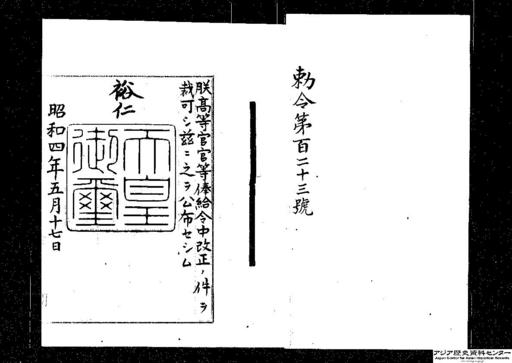 勅令第百二十三號
朕高等官官等俸給令中改正ノ件ヲ
裁可シ茲ニ之ヲ公布セシム
裕仁
天皇
御璽
昭和四年五月十七日
アジア歴史資料センター
Japan Center for Asian Historical Records